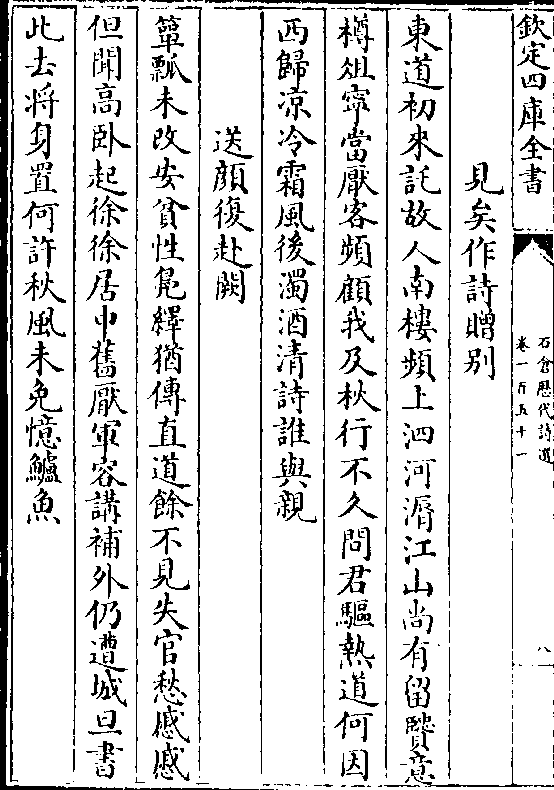 欽定四庫全書
石倉歷代詩選
卷一百五十一
八
見矣作詩贈别
東道初來託故人南樓頻上泗河漘江山尚有留賢意
樽俎寧當厭客頻顧我及秋行不久問君驅熱道何因
西歸凉冷霜風後濁酒清詩誰與親
送顔復赴闕
簞瓢未改安貧性鳬繹猶傳直道餘不見失官愁慼慼
但聞高卧起徐徐居中舊厭軍容講補外仍遭城旦書
此去將身置何許秋風未免憶鱸魚